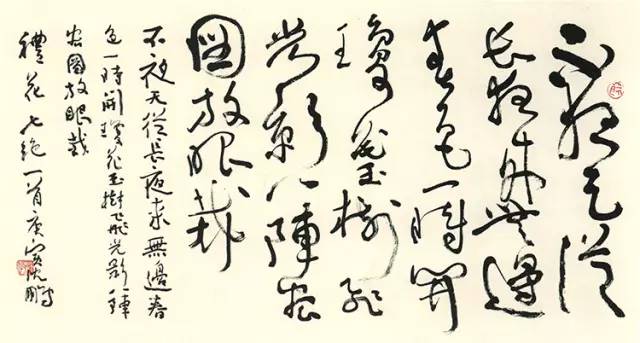 不夜天從
長夜來無邊
春色一時開
瓊花玉樹飛
光影八陣宏
圖放眼裁
不夜天從長夜來無邊春
色一時開瓊花玉樹飛光影八陣
宏圖放眼裁
禮花七絕一首庚寅沈鵬